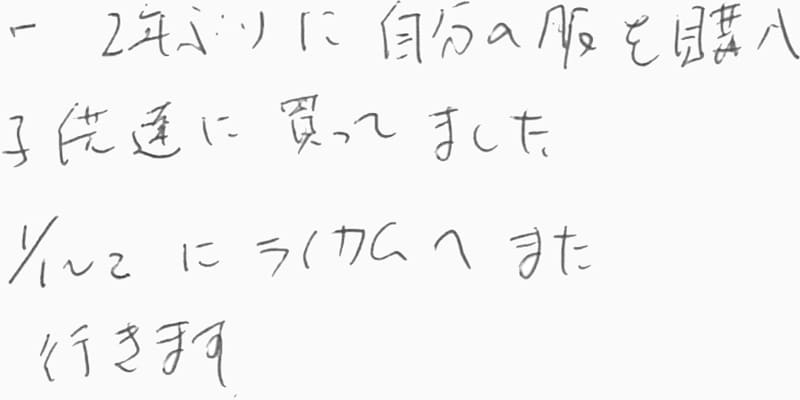 ー 2年ぶりに自分の服を購入
子供達に買ってました
1/1～2 にライカムへまた
行きます